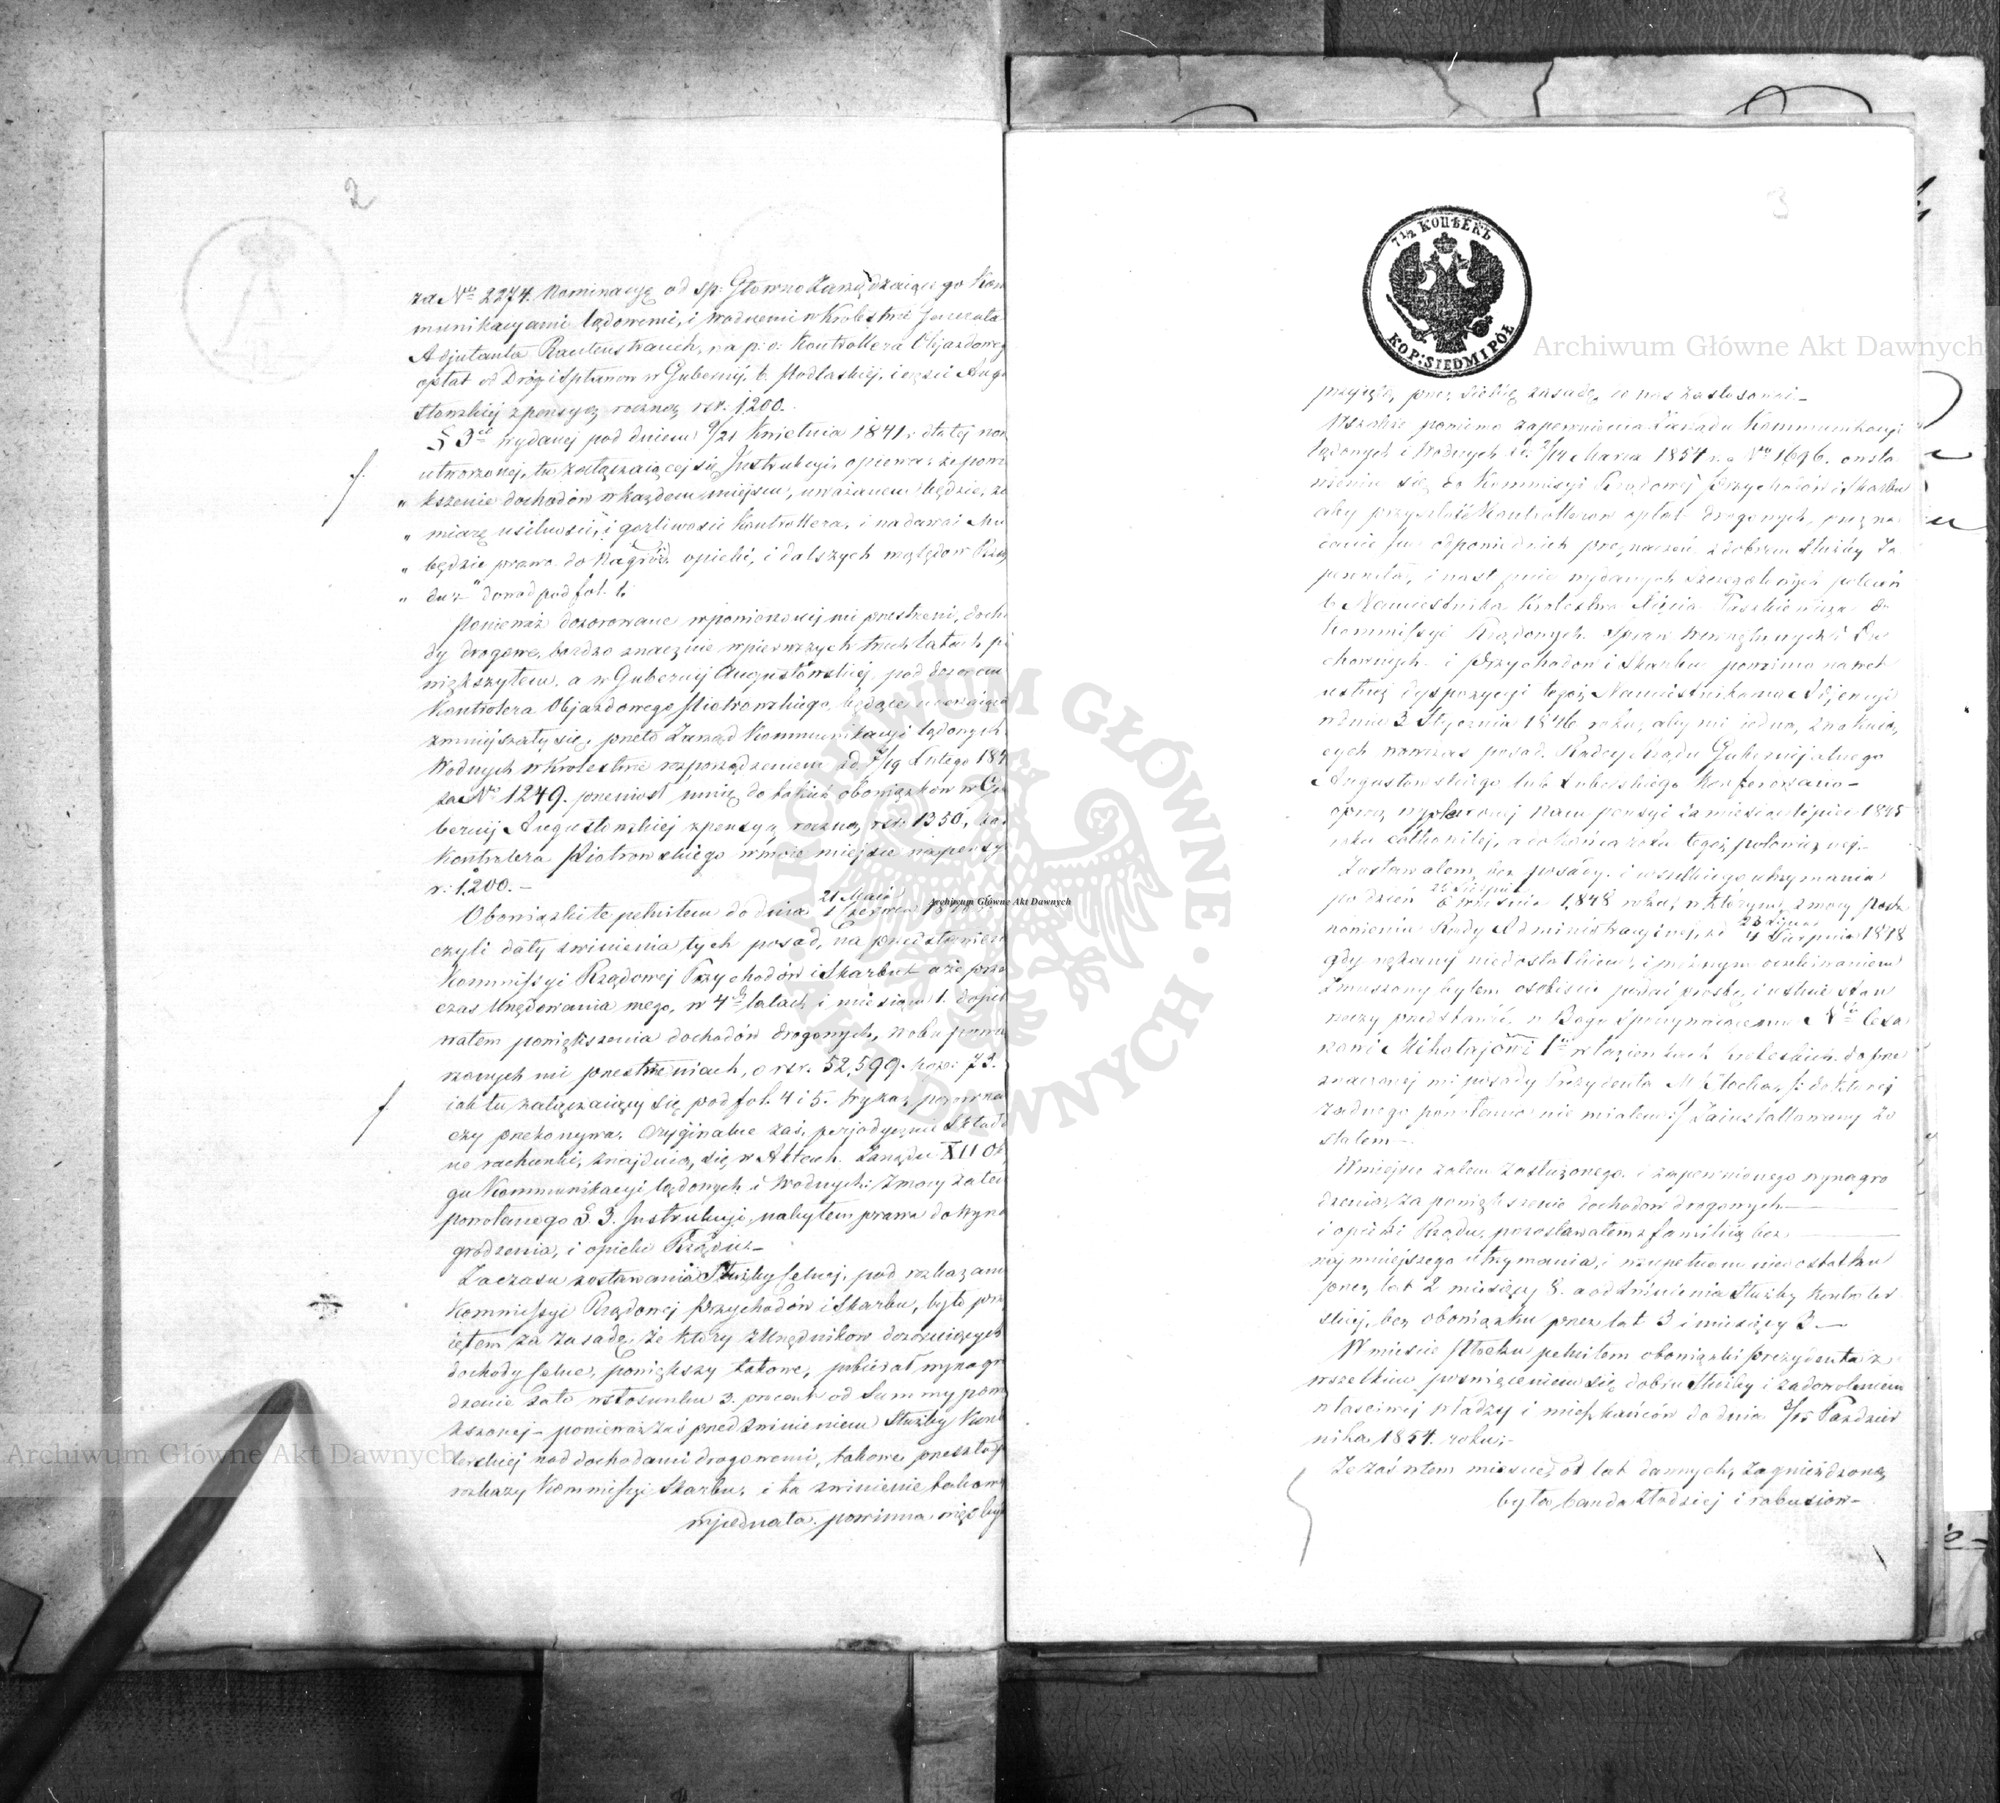 2
za No 2274. Nominacyę od śp: Główno Zarządzaiącego Kom
munikacyami lądowemi, i Wodnemi w Królestwie Jenerała
Adjutanta Rautenstrauch, na p: o: Kontrollera Objazdoweg
opłat od Dróg i Spławów w Gubernij, b. Podlaskiej, i części Augu
stowskiej z pensyą roczną rsr. 1200.
§ 3ci wydanej pod dniem 9/21 Kwietnia 1841 r. dla tej now
utworzonej, tu załączaiącej się Instrukcyi, opiewa: że powi
„ kszenie dochodów w każdem miejscu, uważanem będzie, za
„ miarę usilności, i gorliwości Kontrollera, i nadawać Mu
„ będzie prawo do Nagród, opieki, i dalszych względów Rzą
„ du" dowód pod fol. 1.
Ponieważ dozorowane w pomienionej mi przestrzeni, docho
dy drogowe, bardzo znacznie w pierwszych trzech latach po
większyłem, a w Gubernij Augustowskiej, pod dozorem
Kontrolera Objazdowego Piotrowskiego, będące
zmniejszały się, przeto Zarząd Kommunikacyi lądowych
Wodnych w Królestwie rozporządzeniem z d. 7/19 Lutego 184
za No 1249. przeniósł mnie do takich obowiązków w Gu
bernij Augustowskiej z pensyą roczną rsr. 1350, zaś
Kontrolera Piotrowskiego w moie miejsce na pensyę
r: 1200. —
Obowiązki te pełniłem do dnia 21 Maia / 1 Czerwca
czyli daty zwinienia tych posad, na przedstawienie
Kommissyi Rządowej Przychodów i Skarbu a że prze
czas Urzędowania mego, w 4ch latach i miesiącu 1. dopeł
niałem powiększenia dochodów drogowych, w obu powie
rzonych mi przestrzeniach, o rsr. 52,599. kop: 73.
iak tu załączaiący się pod fol. 4 i 5. Wykaz porównaw
czy przekonywa. Oryginalne zaś, perjodycznie składa
ne rachunki, znajduią się w Aktach Zarządu XII Okrę
gu Kommunikacyi lądowych i Wodnych: Z mocy zatem
powołanego §. 3. Instrukcyi, nabyłem prawa do wyna
grodzenia, i opieki Rządu. —
Za czasu zostawania Służby Celnej, pod rozkazami
Kommissyi Rządowej Przychodów i Skarbu, było przy
iętem za zasadę, że który z Urzędników dozoruiących
dochody Celne, powiększy takowe, pobierał wynagro
dzenie w stosunku 3. procent od Summy powię
kszonej — ponieważ zaś przed zwinieniem Służby Kontro
lerskiej nad dochodami drogowemi, takowe przeszły
rozkazy Kommissyi Skarbu, i ta zwinienie takow
wyjednała, powinna więc być
3
7 1/2 КОПѢЕКЪ
KOP: SIEDM I PÓŁ
przyięta przez Siebie zasadę, do nas zastosować —
Wszakże pomimo zapewnienia Zarządu Kommunikacyi
lądowych i Wodnych z d. 2/14 Marca 1854 r. No 1696. o wsta
wieniu się do Kommissyi Rządowej Przychodów i Skarbu
aby przyszłość Kontrollerów opłat drogowych, przezna
czenie im odpowiednich przeznaczeń z dobrem Służby za
pewniła, i następnie wydanych szczególnych poleceń
b. Namiestnika Królestwa Xięcia Paszkiewicza do
Kommissyi Rządowych Spraw Wewnętrznych i Du
chownych i Przychodów i Skarbu pomimo nawet
ustnej dyspozycyi tegoż Namiestnika na Adjencyi
w dniu 3 Stycznia 1846 roku, aby mi iedną, z wakuią
cych nowczas posad Radcy Rządu Gubernijalnego
Augustowskiego lub Lubelskiego konferowano —
oprócz wypłaconej nam pensyi za miesiąc Lipiec 1845
roku całkowitej, a do końca roku tegoż, połowicznej. —
Zostawałem, bez posady i wszelkiego utrzymania
po dzień 25 Sierpnia / 6 Września 1848 roku, w którym z mocy posta
nowienia Rady Administracyjnej, z d 23 Lipca / 4 Sierpnia 1848
gdy nękany niedostatkiem, i próżnym oczekiwaniem
Zmuszony byłem osobiście podać prośbę, i ustnie stan
rzeczy przedstawić, w Bogu Spoczywaiącemu Nu Cesa
rzowi Mikołajowi 1u w Łazienkach Królewskich do prze
znaczonej mi posady Prezydenta M. Płocka, /: do której
żadnego powołania nie miałem :/ Zainstallowany zo
stałem —
W miejsce zatem zasłużonego i zapewnionego wynagro
dzenia, za powiększenie dochodów drogowych —
i opieki Rządu, pozostawałem z familią bez —
najmniejszego utrzymania, i w zupełnem niedostatku
przez lat 2 miesięcy 8. a od zwinienia Służby Kontroler
skiej, bez obowiązku przez lat 3 i miesięcy 3 —
W mieście Płocku pełniłem obowiązki Prezydenta z
wszelkiem poświęceniem się dobru Służby i zadowoleniem
właściwej władzy i mieszkańców do dnia 3/15 Paździer
nika 1854. roku; —
Że zaś w tem mieście, od lat dawnych, zagnieżdżona,
była, banda złodziej i rabusiów —
Archiwum Główne Akt Dawnych
Archiwum Główne Akt Dawnych
Archiwum Główne Akt Dawnych
ARCHIWUM GŁÓWNE AKT DAWNYCH